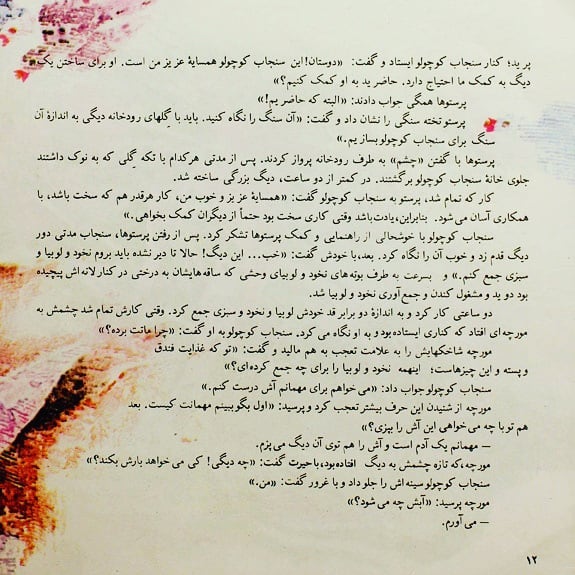 پرید؛ کنار سنجاب کوچولو ایستاد و گفت: «دوستان! این سنجاب کوچولو همسایهٔ عزیز من است. او برای ساختن یک
دیگ به کمک ما احتیاج دارد. حاضرید به او کمک کنیم؟»
پرستوها همگی جواب دادند: «البته که حاضریم!»
پرستو تخته سنگی را نشان داد و گفت: «آن سنگ را نگاه کنید. باید با گِلهای رودخانه دیگی به اندازهٔ آن
سنگ برای سنجاب کوچولو بسازیم.»
پرستوها با گفتن «چشم» به طرف رودخانه پرواز کردند. پس از مدتی هرکدام با تکه گِلی که به نوک داشتند
جلوی خانهٔ سنجاب کوچولو برگشتند. در کمتر از دو ساعت، دیگ بزرگی ساخته شد.
کار که تمام شد، پرستو به سنجاب کوچولو گفت: «همسایهٔ عزیز و خوب من، کار هرقدر هم که سخت باشد، با
همکاری آسان می‌شود. بنابراین، یادت باشد وقتی کاری سخت بود حتماً از دیگران کمک بخواهی.»
سنجاب کوچولو با خوشحالی از راهنمایی و کمک پرستوها تشکر کرد. پس از رفتن پرستوها، سنجاب مدتی دور
دیگ قدم زد و خوب آن را نگاه کرد. بعد، با خودش گفت: «خب... این دیگ! حالا تا دیر نشده باید بروم نخود و لوبیا و
سبزی جمع کنم.» و بسرعت به طرف بوته‌های نخود و لوبیای وحشی که ساقه‌هایشان به درختی در کنار لانه‌اش پیچیده
بود دوید و مشغول کندن و جمع‌آوری نخود و لوبیا شد.
دو ساعتی کار کرد و به اندازهٔ دو برابر قد خودش لوبیا و نخود و سبزی جمع کرد. وقتی کارش تمام شد چشمش به
مورچه‌ای افتاد که کناری ایستاده بود و به او نگاه می‌کرد. سنجاب کوچولو به او گفت: «چرا ماتت برده؟»
مورچه شاخکهایش را به علامت تعجب به هم مالید و گفت: «تو که غذایت فندق
و پسته و این چیزهاست؛ اینهمه نخود و لوبیا را برای چه جمع کرده‌ای؟»
سنجاب کوچولو جواب داد: «می‌خواهم برای مهمانم آش درست کنم.»
مورچه از شنیدن این حرف بیشتر تعجب کرد و پرسید: «اول بگو ببینم مهمانت کیست. بعد
هم تو با چه می‌خواهی این آش را بپزی؟»
— مهمانم یک آدم است و آش را هم توی آن دیگ می‌پزم.
مورچه، که تازه چشمش به دیگ افتاده بود، با حیرت گفت: «چه دیگی! کی می‌خواهد بارش بکند؟»
سنجاب کوچولو سینه‌اش را جلو داد و با غرور گفت: «من.»
مورچه پرسید: «آبش چه می‌شود؟»
— می‌آورم.
۱۲